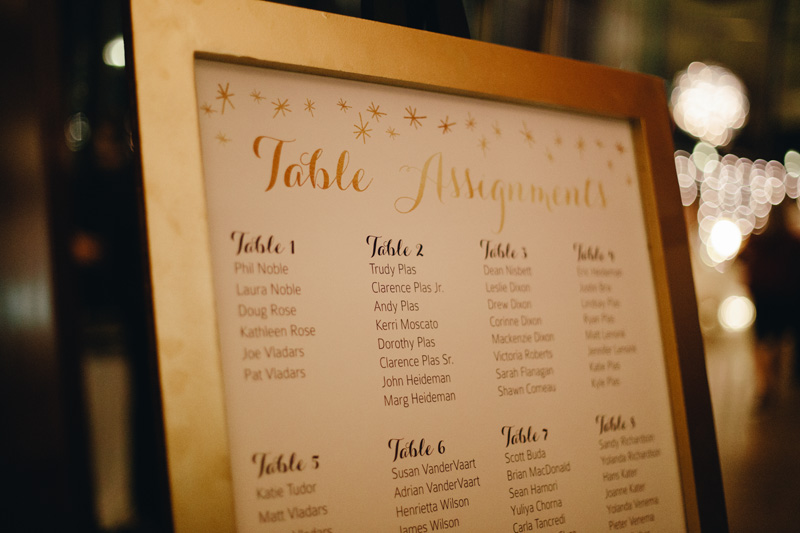 Table Assignments
Table 1
Phil Noble
Laura Noble
Doug Rose
Kathleen Rose
Joe Vladars
Pat Vladars
Table 2
Trudy Plas
Clarence Plas Jr.
Andy Plas
Kerri Moscato
Dorothy Plas
Clarence Plas Sr.
John Heideman
Marg Heideman
Table 3
Dean Nisbett
Leslie Dixon
Drew Dixon
Corinne Dixon
Mackenzie Dixon
Victoria Roberts
Sarah Flanagan
Shawn Comeau
Table 4
Eric Heideman
Justin Bria
Lindsay Plas
Ryan Plas
Matt
Jennifer
Katie Plas
Kyle Plas
Table 5
Katie Tudor
Matt Vladars
Vladars
Table 6
Susan VanderVaart
Adrian VanderVaart
Henrietta Wilson
James Wilson
Table 7
Scott Buda
Brian MacDonald
Sean Hamon
Yuliya Chorna
Carla Tancredi
Table 8
Sandy Richardson
Yolanda Richardson
Hans Kater
Joanne Kater
Yolanda Venema
Pieter Venema